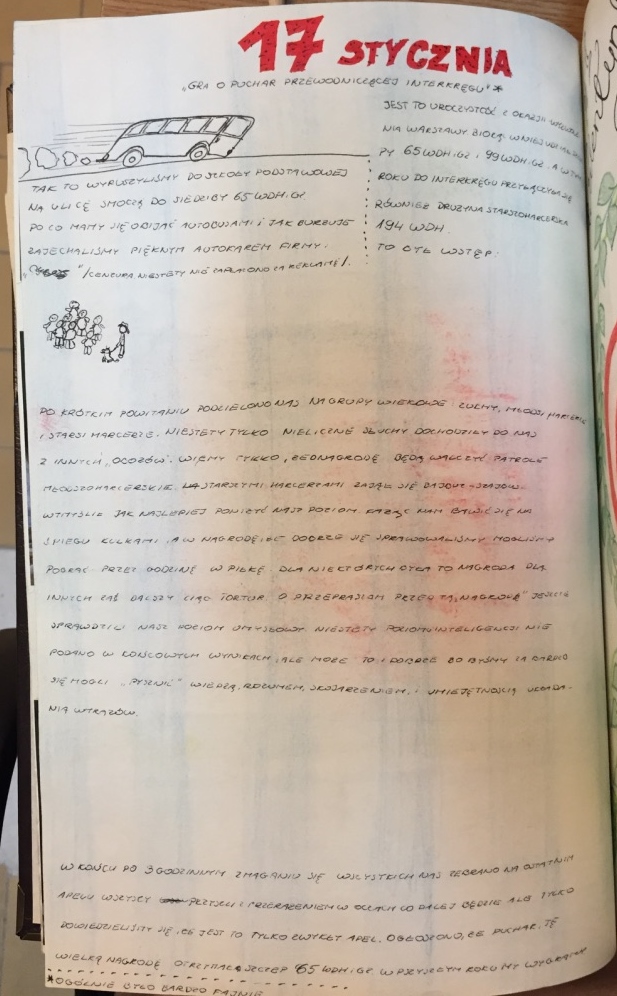 17 STYCZNIA
„GRA O PUCHAR PRZEWODNICZĄCEJ INTERKRĘGU" *
JEST TO UROCZYSTOŚĆ Z OKAZJI WYZWOLE
NIA WARSZAWY BIORĄ W NIEJ UDZIAŁ
PY 65 WDH.iGZ i 99 WDH.iGZ. A W TYM
ROKU DO INTERKRĘGU PRZYŁĄCZYŁA SIĘ
RÓWNIEŻ DRUŻYNA STARSZOHARCERSKA
194 WDH.
TO TYLE WSTĘP.
TAK TO WYRUSZYLIŚMY DO SZKOŁY PODSTAWOWEJ
NA ULICĘ SMOCZĄ DO SIEDZIBY 65 WDH.iGZ
PO CO MAMY SIĘ OBIJAĆ AUTOBUSAMI i JAK BURŻUJE
ZAJECHALIŚMY PIĘKNYM AUTOKAREM FIRMY:
"/CENZURA, NIESTETY NIE ZAPŁACONO ZA REKLAMĘ/.
PO KRÓTKIM POWITANIU PODZIELONO NAS NA GRUPY WIEKOWE: ZUCHY, MŁODSI HARCERZE
I STARSI HARCERZE. NIESTETY TYLKO NIELICZNE SŁUCHY DOCHODZIŁY DO NAS
Z INNYCH „OBOZÓW". WIEMY TYLKO, ŻE O NAGRODĘ BĘDĄ WALCZYĆ PATROLE
MŁODSZOHARCERSKIE. ZA STARSZYMI HARCERZAMI ZAJĄŁ SIĘ
WYMYŚLIŁ JAK NAJLEPIEJ PONIŻYĆ NASZ POZIOM. KAŻĄC NAM BAWIĆ SIĘ NA
ŚNIEGU KULKAMI, A W NAGRODĘ, ŻE DOBRZE SIĘ SPRAWOWALIŚMY MOGLIŚMY
POGRAĆ PRZEZ GODZINĘ W PIŁKĘ. DLA NIEKTÓRYCH BYŁA TO NAGRODA DLA
INNYCH ZAŚ DALSZY CIĄG TORTUR. O PRZEPRASZAM PRZED TĄ „NAGRODĄ" JESZCZE
SPRAWDZILI NASZ POZIOM UMYSŁOWY. NIESTETY POZIOMU INTELIGENCJI NIE
PODANO W KOŃCOWYCH WYNIKACH, ALE MOŻE TO I DOBRZE BO BYŚMY ZA BARDZO
SIĘ MOGLI „PYSZNIĆ" WIEDZĄ, ROZUMEM, SKOJARZENIEM, I UMIEJĘTNOŚCIĄ UKŁADA-
NIA WYRAZÓW.
W KOŃCU PO 3 GODZINNYM ZMAGANIU SIĘ WSZYSTKICH NAS ZEBRANO NA OSTATNIM
APELU WSZYSCY PRZYSZLI Z PRZERAŻENIEM W OCZACH CO DALEJ BĘDZIE ALE TYLKO
DOWIEDZIELIŚMY SIĘ, ŻE JEST TO TYLKO ZWYKŁY APEL. OGŁOSZONO, ŻE PUCHAR, TĘ
WIELKĄ NAGRODĘ OTRZYMAŁ SZCZEP 65 WDH.iGZ. W PRZYSZŁYM ROKU MY WYGRAMY
*OGÓLNIE BYŁO BARDZO FAJNIE